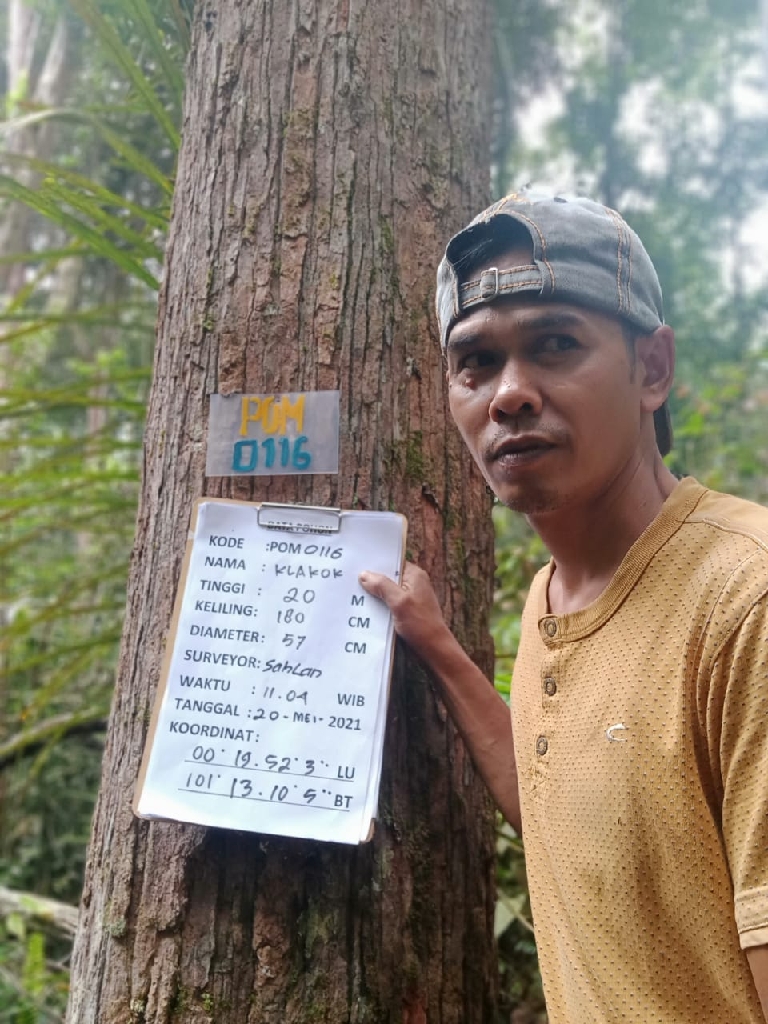 POM
0116
DATA POHON
KODE : POM 0116
NAMA : KLAKOK
TINGGI : 20 M
KELILING: 180 CM
DIAMETER: 57 CM
SURVEYOR: Sahlan
WAKTU : 11.04 WIB
TANGGAL : 20 - MEI - 2021
KOORDINAT:
00° 19. 52' 3" LU
101° 13. 10' 5" BT